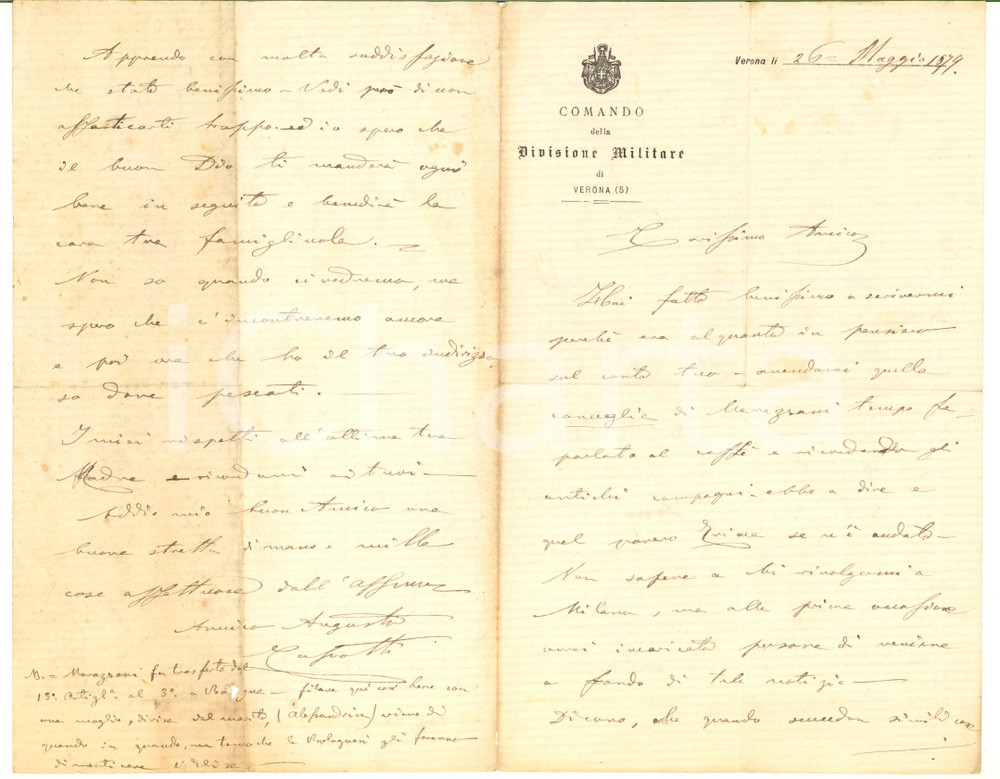 Verona li 26 Maggio 1879.
COMANDO
della
Divisione Militare
di
VERONA (5)
Carissimo Amico
Hai fatto benissimo a scrivermi
perchè era alquanto in pensiero
sul conto tuo - avendomi quella
di Marazzani tempo fa
parlato al caffè e ricordando gli
antichi compagni - ebbe a dire e
quel povero se n'è andato -
Non sapeva a chi rivolgermi a
Milano, ma alla prima occasione
avrei incaricato persona di venirne
a fondo di tale notizia -
Dicono, che quando succedon simili cose
Apprendo con molta soddisfazione
che state benissimo - Vedi però di non
affaticarti troppo - ed io spero che
il buon Ddio ti manderà ogni
bene in seguito e benedirà la
cara tua famigliuola. -
Non so quando ci vedremo, ma
spero che c'incontreremo ancora
e poi ora che ho il tuo indirizzo,
so dove pescarti. -
I miei rispetti all'ottima tua
Madre e ricordami ai tuoi -
Addio mio buon Amico una
buona stretta di mano e mille
cose affettuose dall'Affmo
Amico Augusto
N. = Marazzani fu trasferto dal
13° Artiglia al 3° a Bologna - filava qui così bene con
una moglie, divisa dal marito, (Alessandrina) viene di
quando in quando, ma temo che le Bolognesi gli faranno
dimenticare